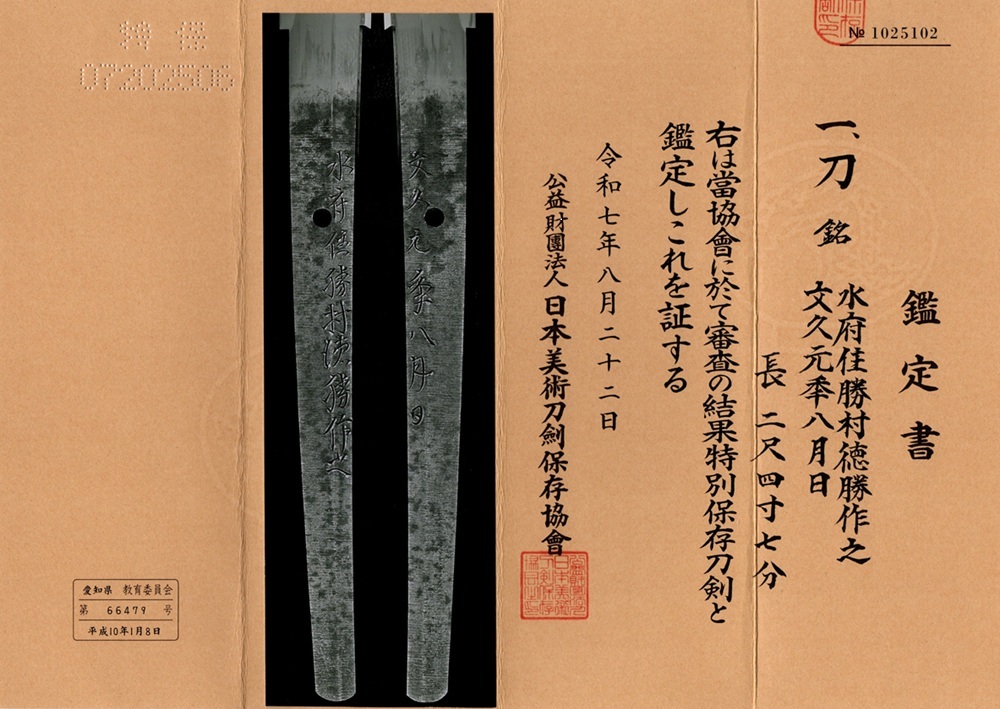 № 1025102
鑑定書
一、刀 銘 水府住勝村徳勝作之
文久元年八月日
長 二尺四寸七分
右は當協會に於て審査の結果特別保存刀剣と
鑑定しこれを証する
令和七年八月二十二日
公益財團法人 日本美術刀劍保存協會
文久元年八月日
水府住勝村徳勝作之
特保
07202506
愛知県 教育委員会
第 66479 号
平成10年1月8日